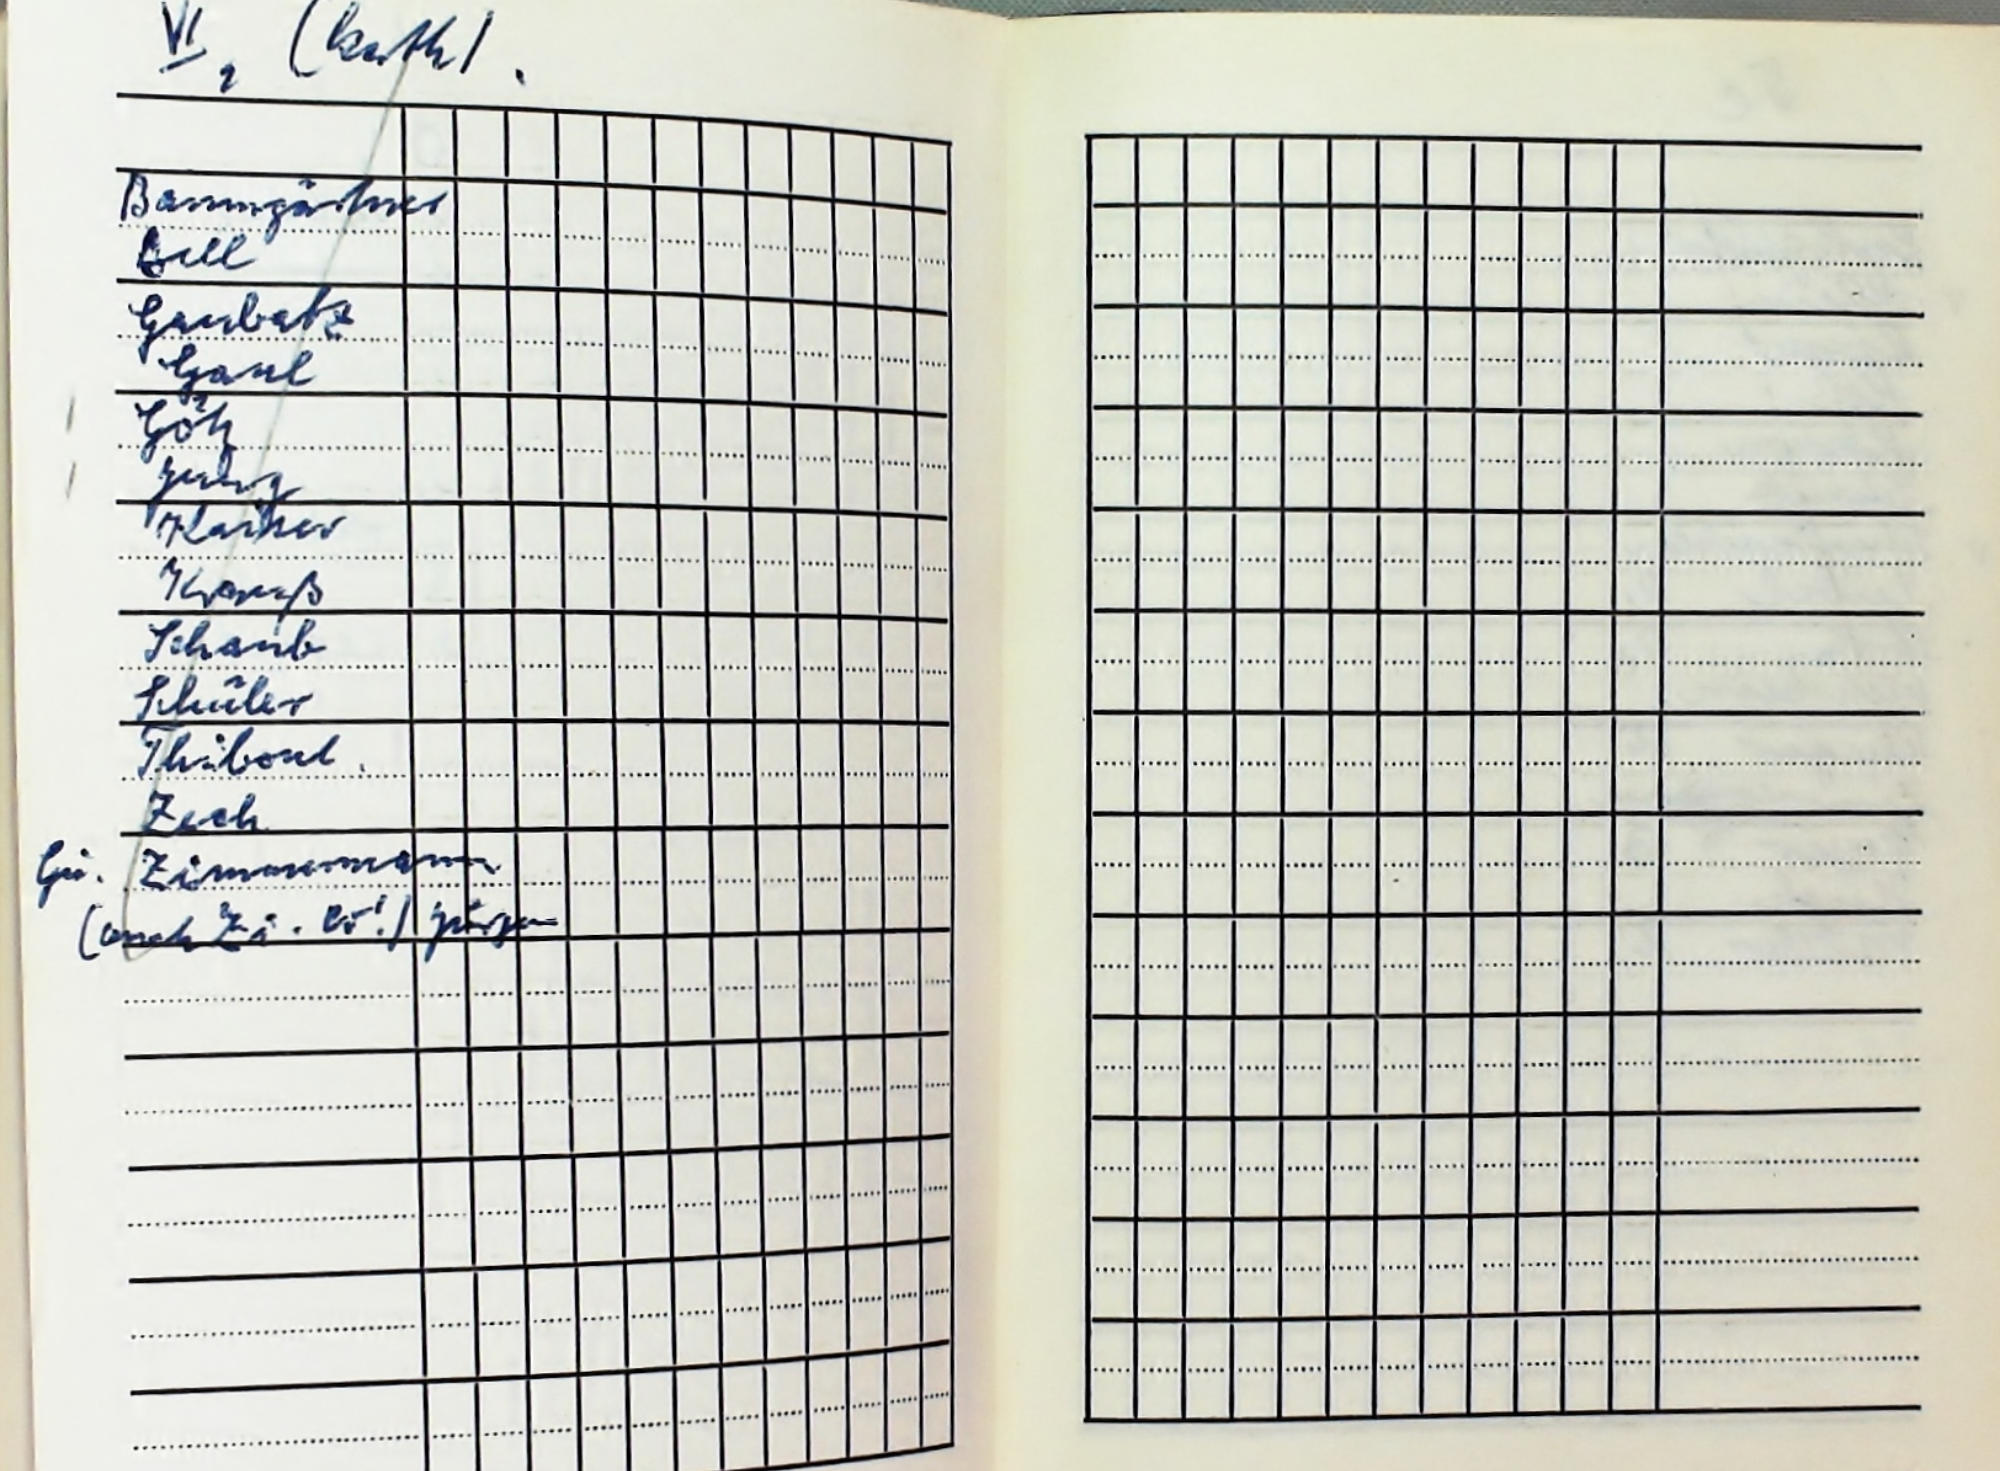 VI, (kath).
Baumgärtner
Bell
Gaubatz
Gaul
Götz
Jung
Klaiber
Krauß
Schaub
Schüler
Thibout.
Zech
Gü. Zimmermann
(auch Zi. ) Jürgen